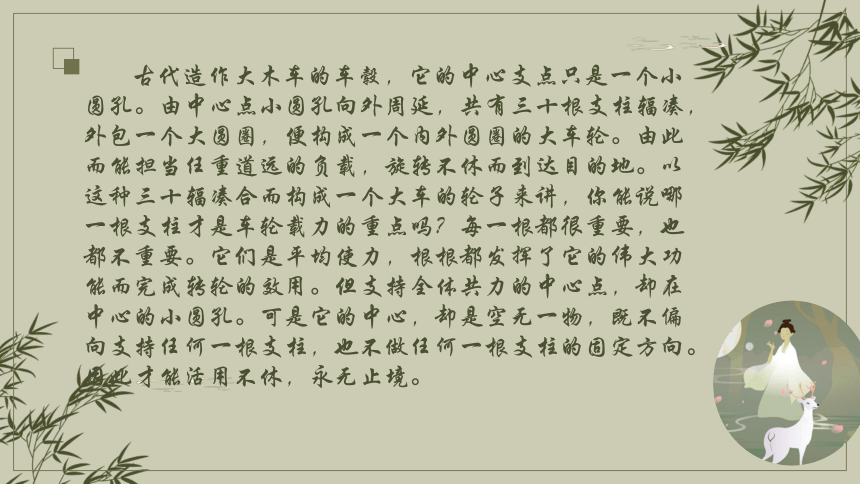 古代造作大木车的车毂，它的中心支点只是一个小
圆孔。由中心点小圆孔向外周延，共有三十根支柱辐凑，
外包一个大圆圈，便构成一个内外圆圈的大车轮。由此
而能担当任重道远的负载，旋转不休而到达目的地。以
这种三十辐凑合而构成一个大车的轮子来讲，你能说哪
一根支柱才是车轮载力的重点吗？每一根都很重要，也
都不重要。它们是平均使力，根根都发挥了它的伟大功
能而完成转轮的效用。但支持全体共力的中心点，却在
中心的小圆孔。可是它的中心，却是空无一物，既不偏
向支持任何一根支柱，也不做任何一根支柱的固定方向。
因此才能活用不休，永无止境。